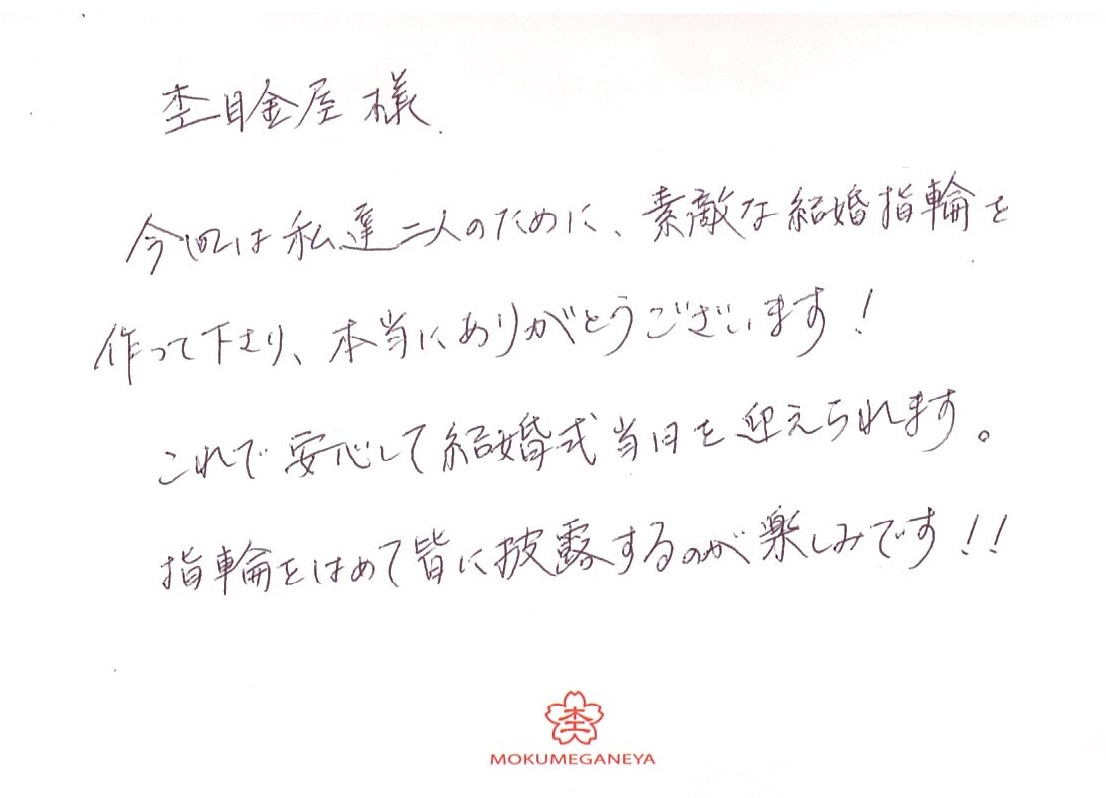 杢目金屋 様
今回は私達二人のために、素敵な結婚指輪を
作って下さり、本当にありがとうございます!
これで安心して結婚式当日を迎えられます。
指輪をはめて皆に披露するのが楽しみです!!
杢
MOKUMEGANEYA